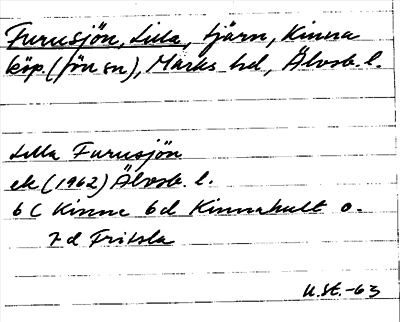 Furusjön, Lilla, tjärn, Kinna
köp. (fön sn), Marks hd, Älvsb. l.
Lilla Furusjön
ek (1962) Älvsb. l.
6 c Kinna 6d Kinnahult o.
7d Fritsla
U.St.-63